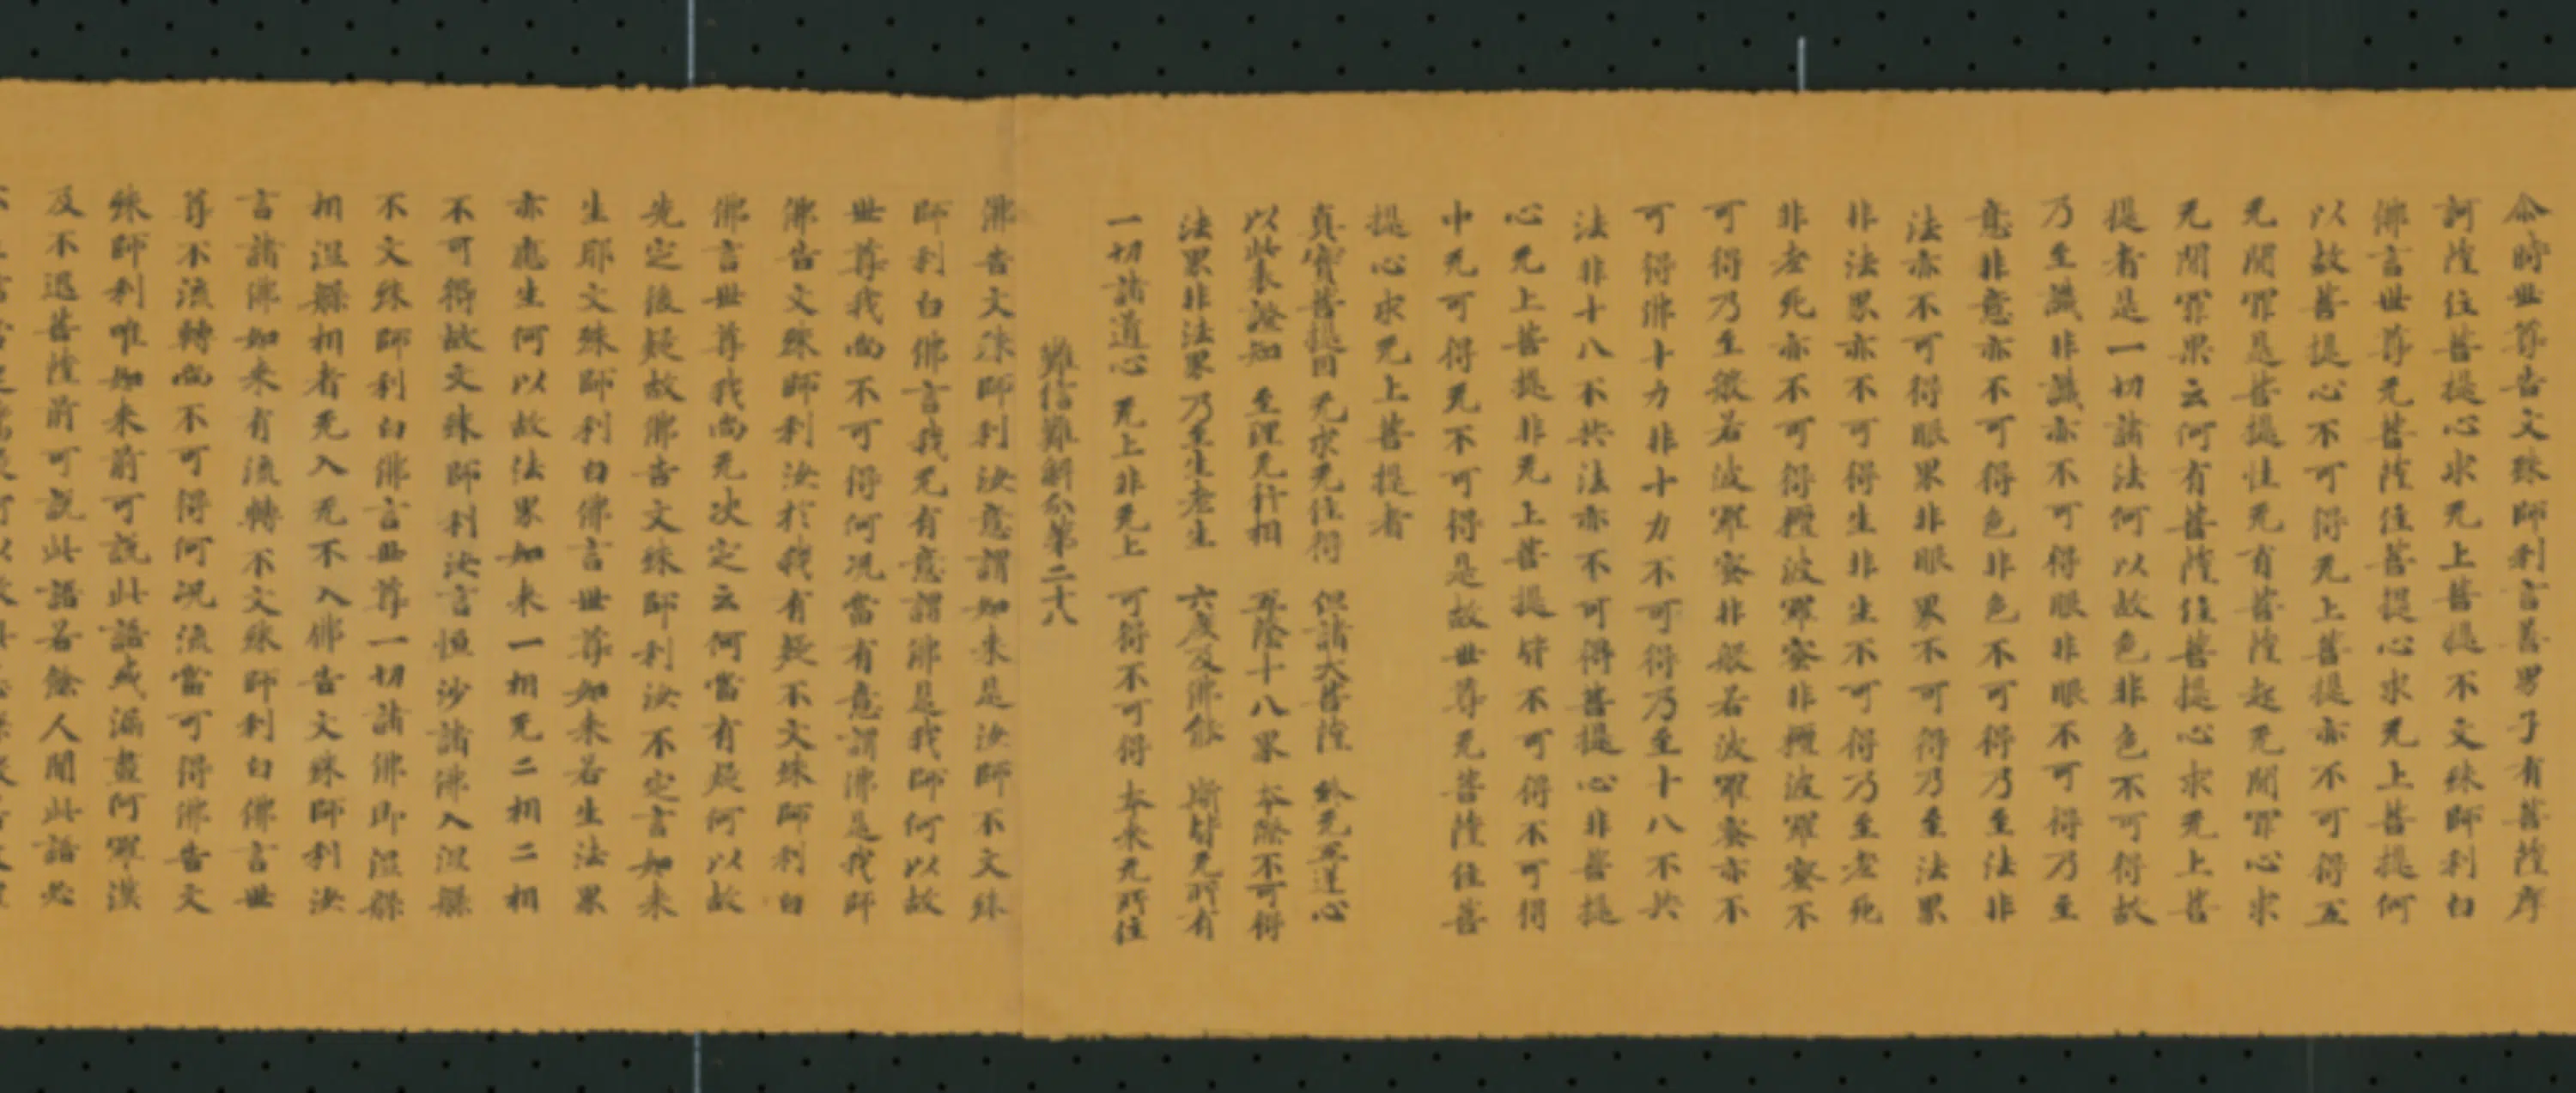 尒時世尊告文殊師利言善男子有菩薩摩
訶薩住菩提心求无上菩提不文殊師利白
佛言世尊无菩薩住菩提心求无上菩提何
以故菩提心不可得无上菩提亦不可得五
无間罪是菩提性无有菩薩起无間罪心求
无間罪果云何有菩薩住菩提心求无上菩
提者是一切諸法何以故色非色不可得故
乃至識非識亦不可得眼非眼不可得乃至
意非意亦不可得色非色不可得乃至法非
法亦不可得眼界非眼界不可得乃至法界
非法界亦不可得生非生不可得乃至老死
非老死亦不可得檀波羅蜜非檀波羅蜜不
可得乃至般若波羅蜜非般若波羅蜜亦不
可得佛十力非十力不可得乃至十八不共
法非十八不共法亦不可得菩提心非菩提
心无上菩提非无上菩提皆不可得不可得
中无可得无不可得是故世尊无菩薩住菩
提心求无上菩提者
真實菩提因 无求无住得 但諸大菩薩 終无五逆心
以此表證知 至理无行相 五陰十八界 本際不可得
法界非法界 乃至生老生 六度及佛能 斯皆无所有
一切諸道心 无上非无上 可得不可得 本來无所住
難信難解分第二十八
佛告文殊師利汝意謂如來是汝師不文殊
師利白佛言我无有意謂佛是我師何以故
世尊我尚不可得何況當有意謂佛是我師
佛告文殊師利汝於我有疑不文殊師利白
佛言世尊我尚无決定云何當有疑何以故
先定後疑故佛告文殊師利汝不定言如來
生耶文殊師利白佛言世尊如來若生法界
亦應生何以故法界如來一相无二相二相
不可得故文殊師利汝言恒沙諸佛入涅槃
不文殊師利白佛言世尊一切諸佛即涅槃
相涅槃相者无入无不入佛告文殊師利汝
言諸佛如來有流轉不文殊師利白佛言世
尊不流轉尚不可得何況流當可得佛告文
殊師利唯如來前可說此語或漏盡阿羅漢
及不退菩薩前可說此語若餘人聞此語必